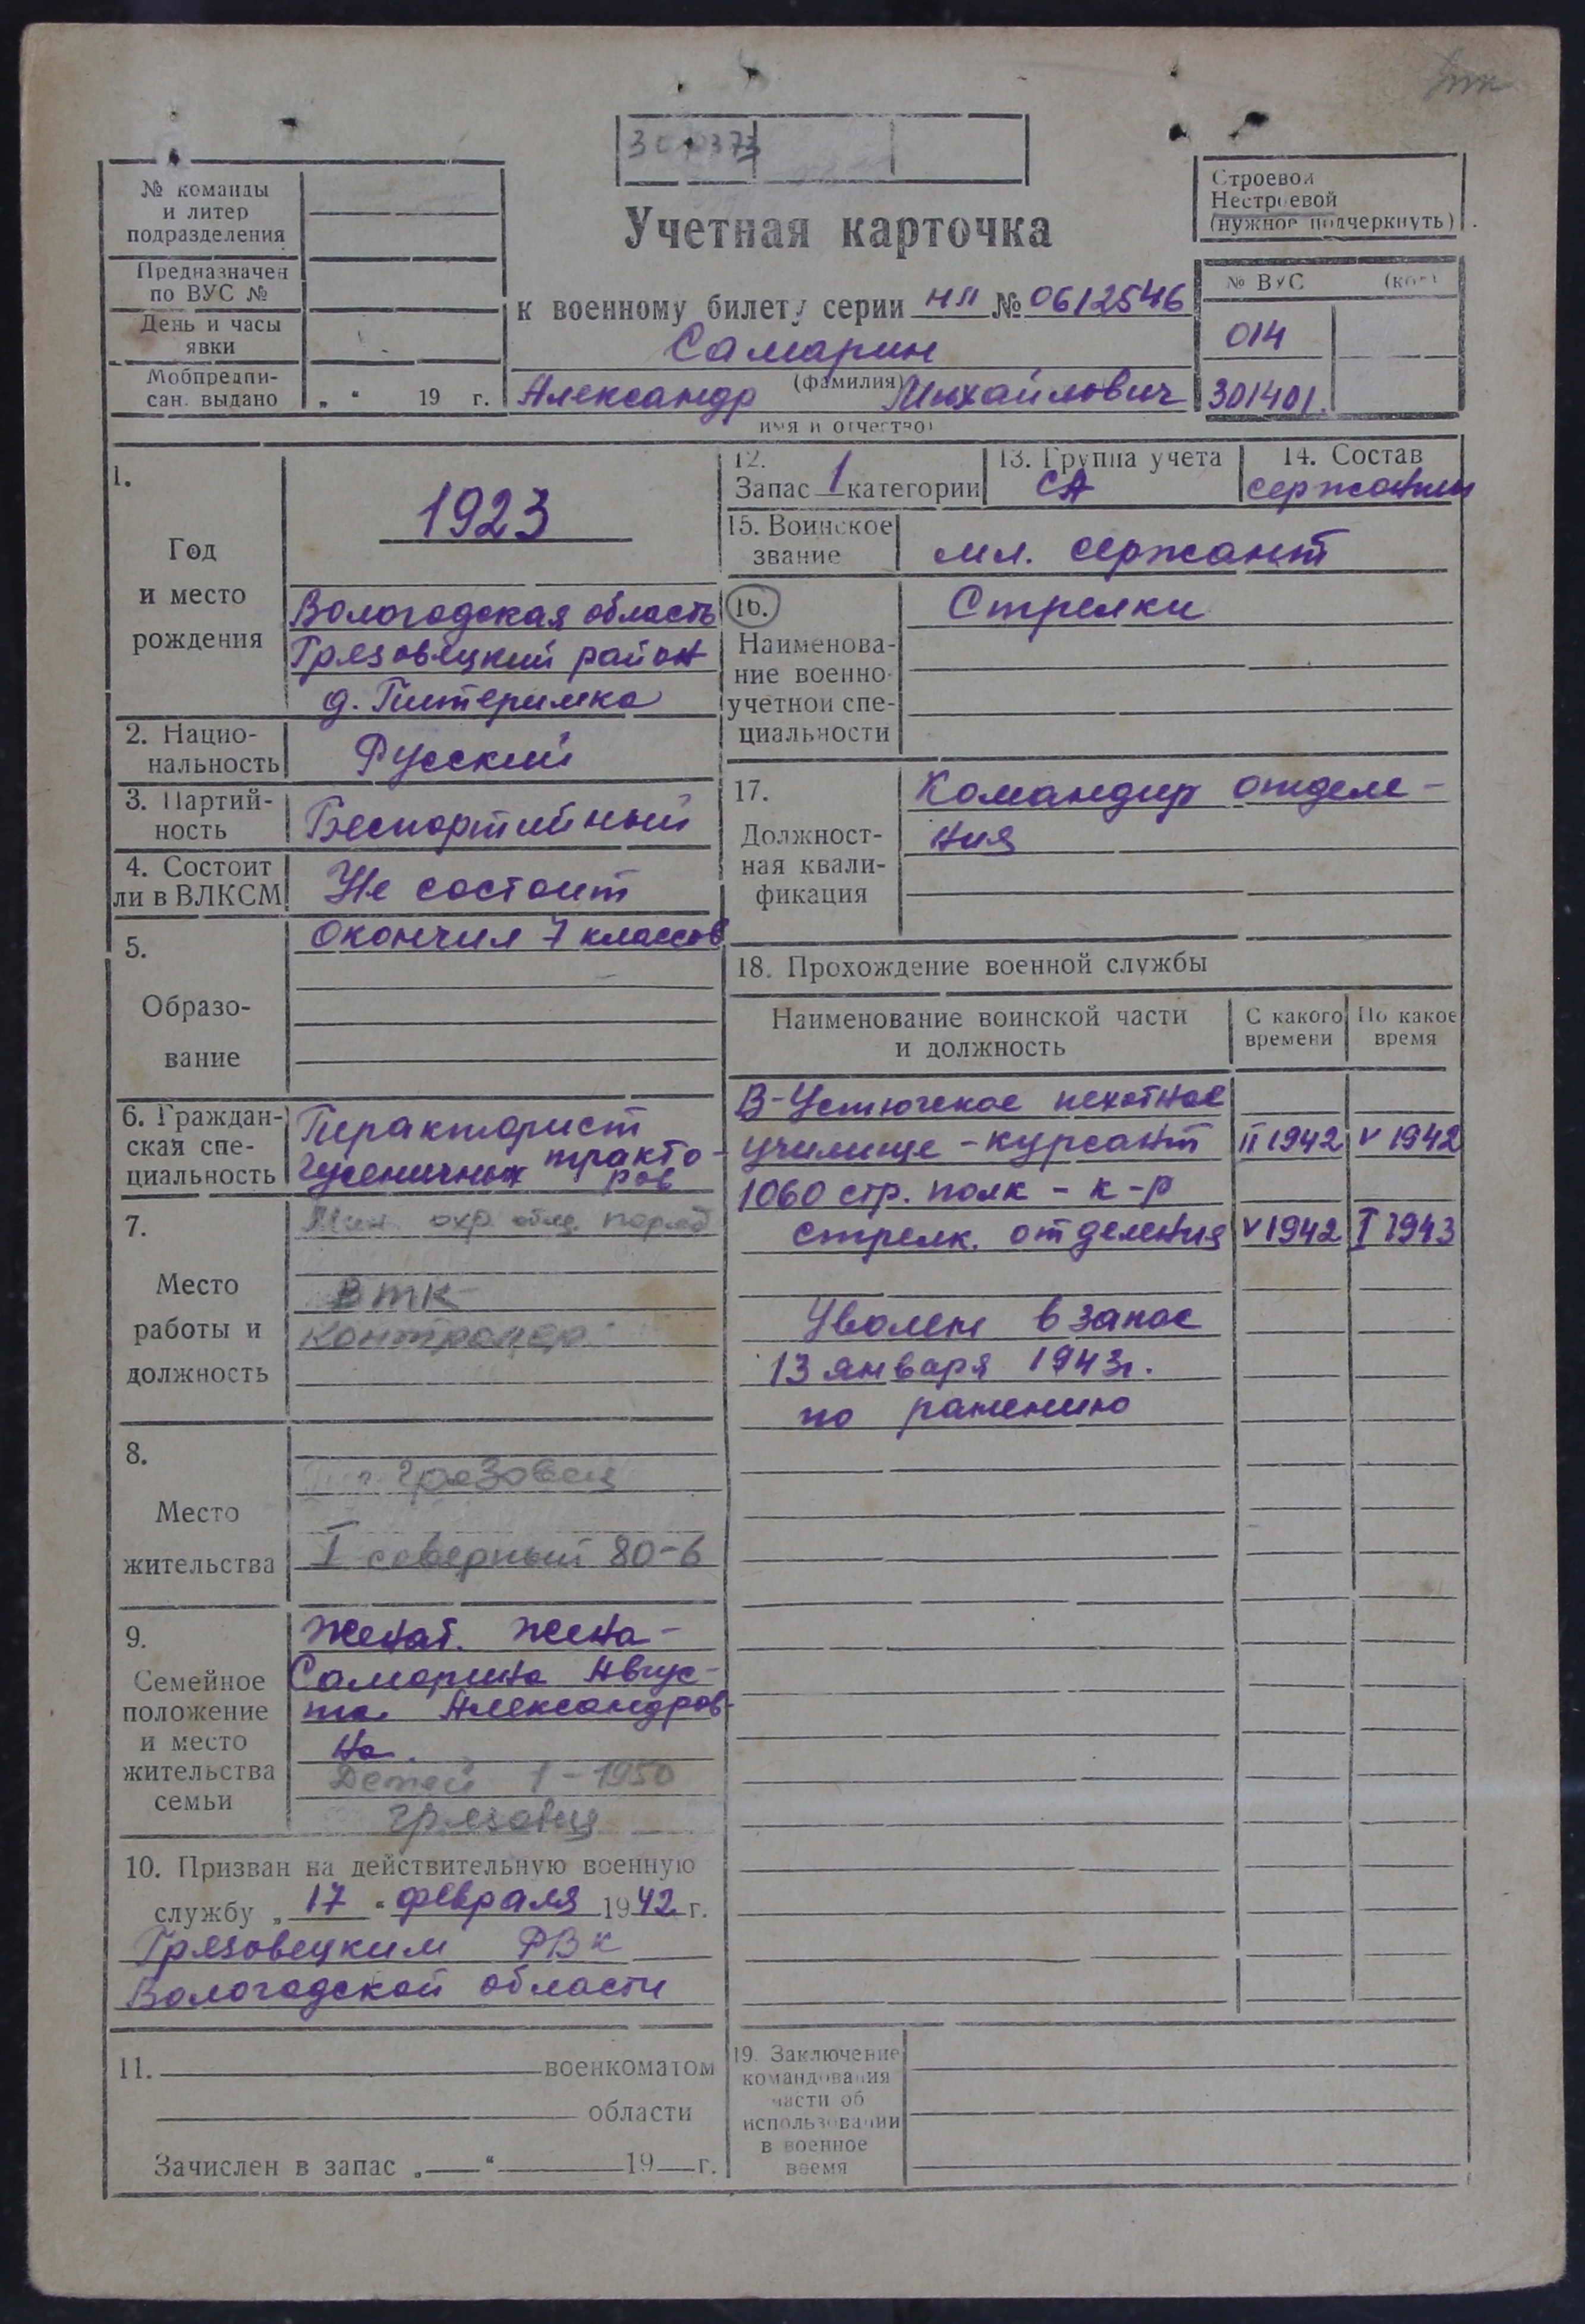 № команды
и литер
подразделения
Предназначен
по ВУС №
День и часы
явки
Мобпредпи-
сан. выдано „ “ 19 г.
Учетная карточка
к военному билету серии НП № 0612546
Самарин
(фамилия)
Александр Михайлович
имя и отчество)
Строевой
Нестроевой
(нужное подчеркнуть)
№ ВУС (код)
014
301401.
1.
Год
и место
рождения
1923
Вологодская область
Грязовецкий район
д. Питеримка
2. Нацио-
нальность
Русский
3. Партий-
ность
Беспартийный
4. Состоит
ли в ВЛКСМ
Не состоит
5.
Образо-
вание
Окончил 7 классов
6. Граждан-
ская спе-
циальность
гусеничных тракто-
ров
7.
Место
работы и
должность
охр. общ. поряд
ВТК
контролер
8.
Место
жительства
г. Грязовец
I северный 80-6
9.
Семейное
положение
и место
жительства
семьи
Женат. Жена-
Самарина Авгус-
та Александров-
на.
Детей 1-1950
Грязовец
10. Призван на действительную военную
службу „ 17 “ февраля 1942 г.
Грязовецким РВК
Вологодской области
11. военкоматом
области
Зачислен в запас „ “ 19 г.
12.
Запас 1 категории
13. Группа учета
СА
14. Состав
сержанты
15. Воинское
звание
мл. сержант
16.
Наименова-
ние военно-
учетной спе-
циальности
Стрелки
17.
Должност-
ная квали-
фикация
Командир отделе-
ния
18. Прохождение военной службы
Наименование воинской части
и должность
С какого
времени
По какое
время
В-Устюгское пехотное
училище - курсант II 1942 V 1942
1060 стр. полк - к-р
стрелк. отделения V 1942 I 1943
Уволен в запас
13 января 1943г.
по ранению
19. Заключение
командования
части об
использовании
в военное
время